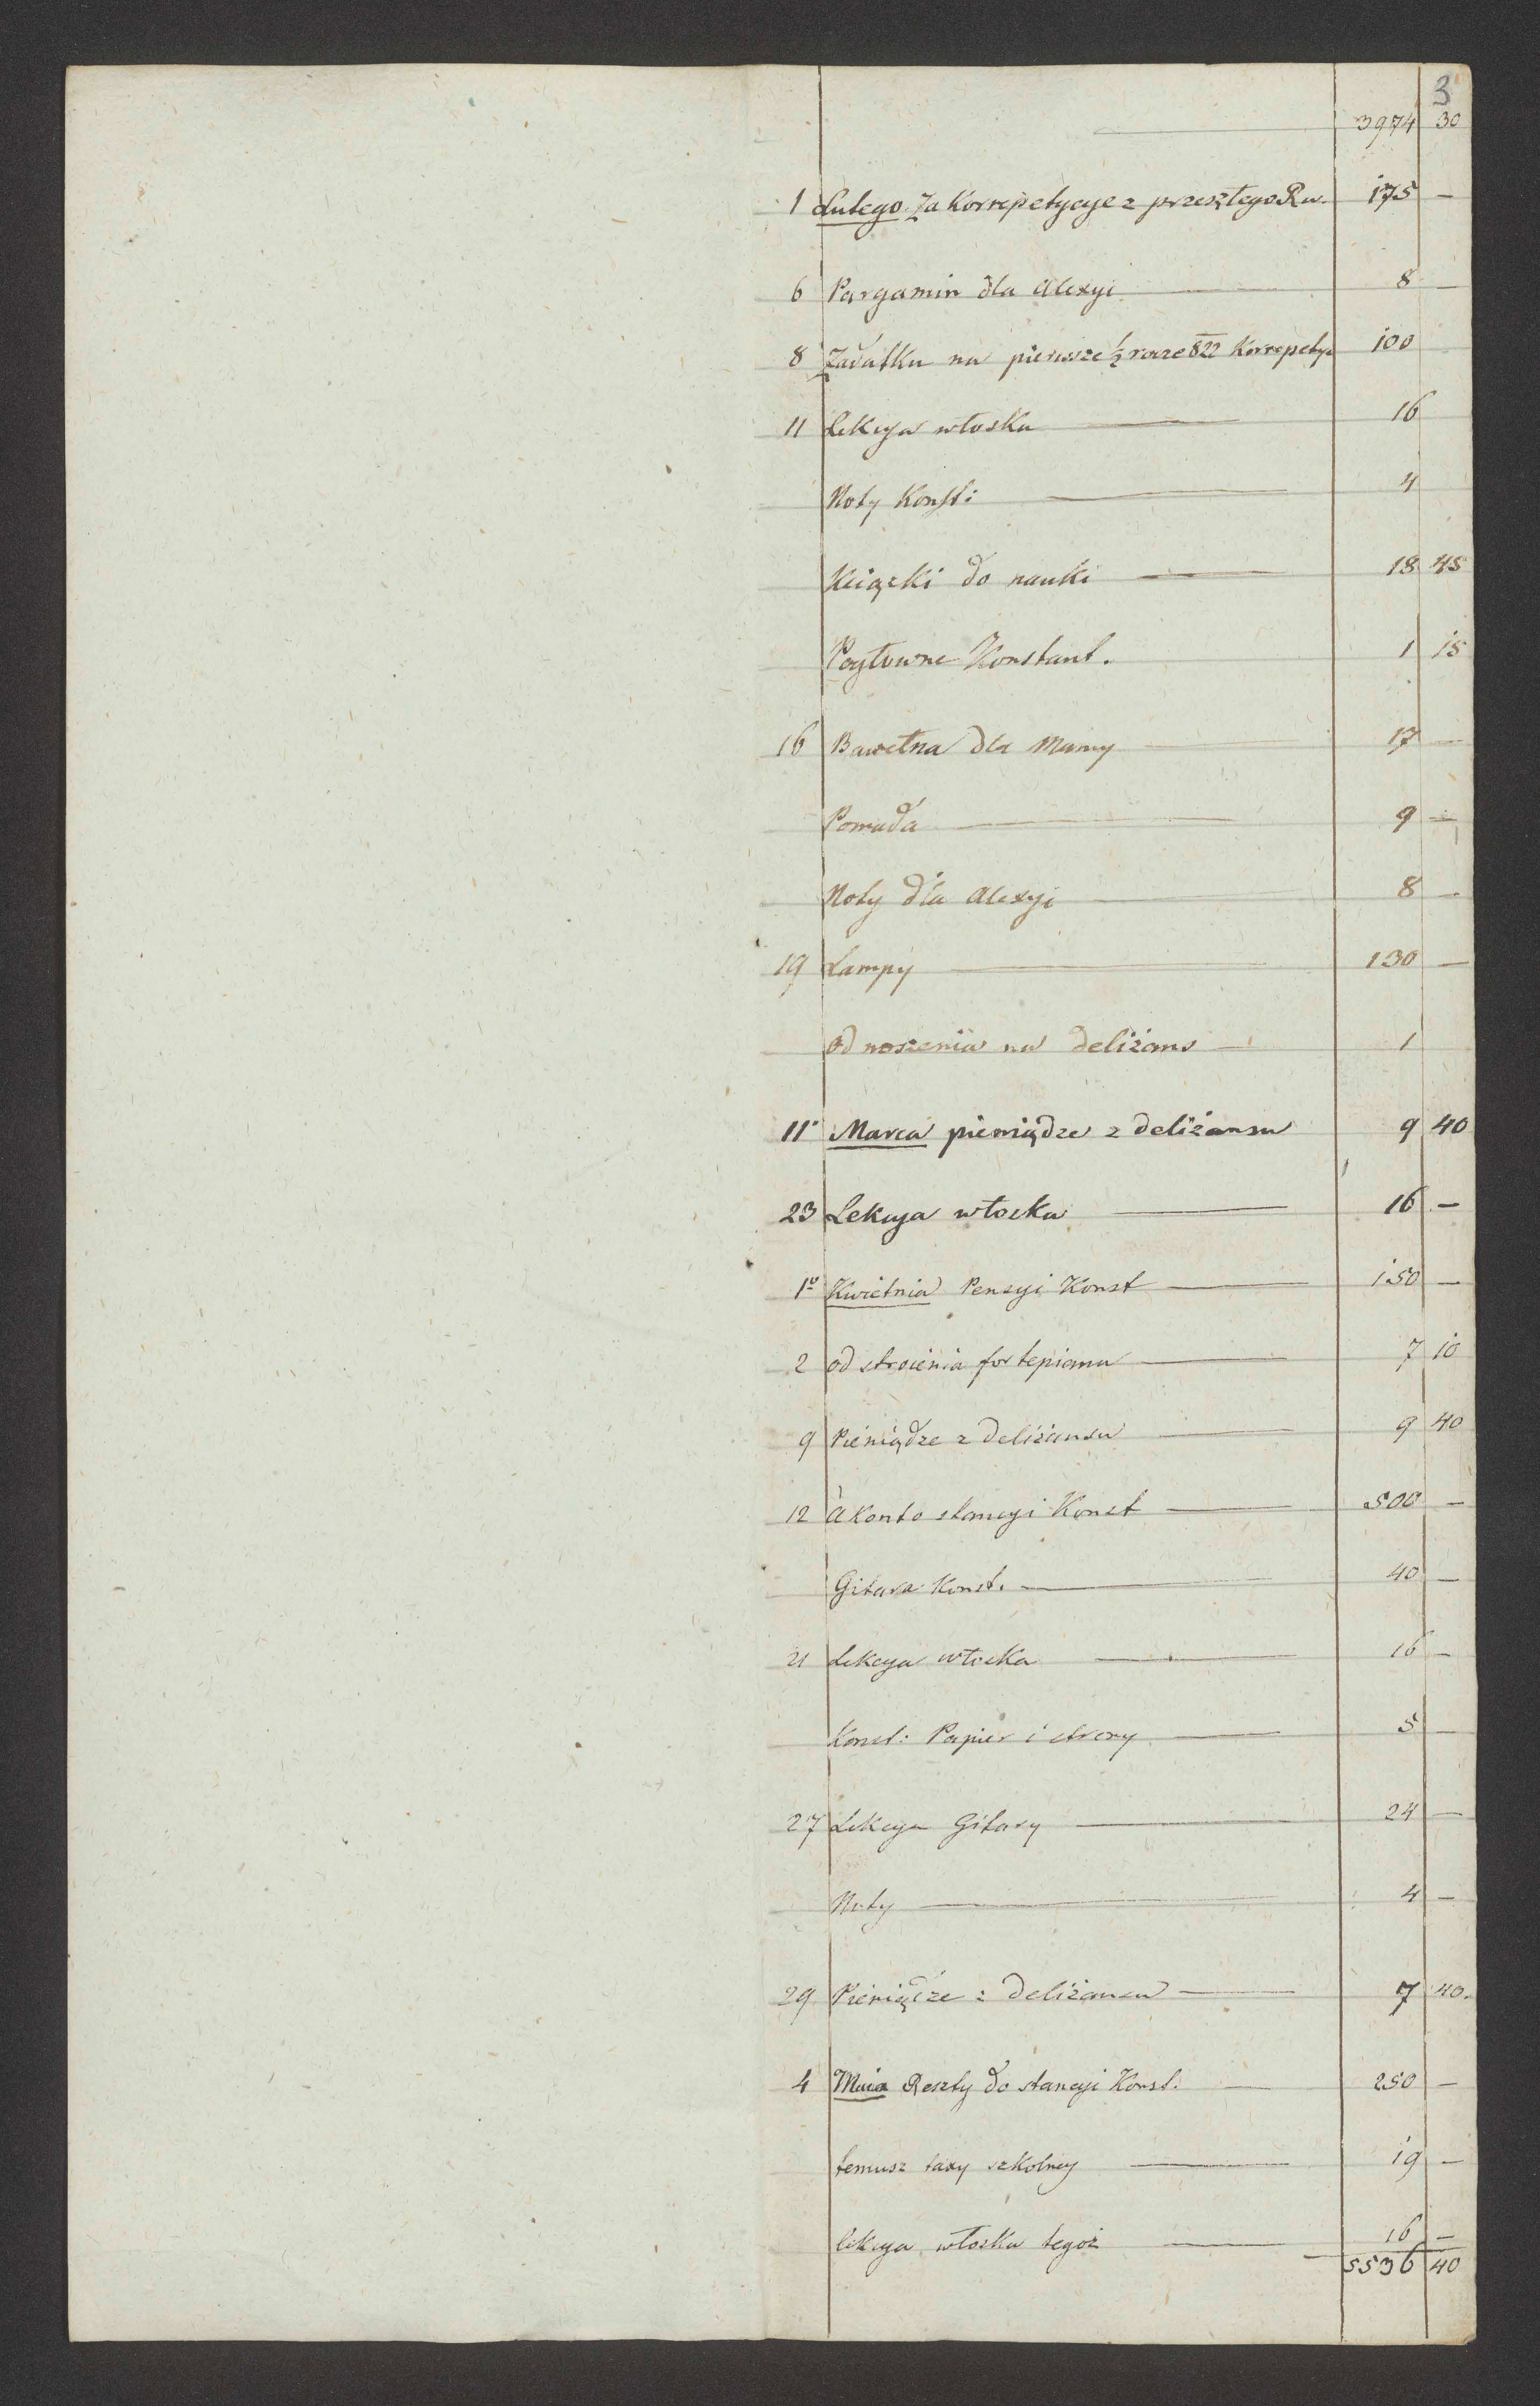 3
3974 30
1 Lutego Za Korrepetycye z przeszłego Ru. 175 —
6 Pargamin dla Alexyi 8 —
8 Zadatku na pierwsze ½ rocze 822 Korrepetyc 100
11 Lekcya włoska 16
Noty Konst: 4
Xiążki do nauki 18 45
Konstant. 1 15
16 Bawełna dla Mamy 17 —
Pomada 9 —
Noty dla Alexyi 8 —
19 Lampy 130 —
od noszenia na deliżans 1
11 Marca pieniądze z deliżansu 9 40
23 Lekcya włoska 16 —
1o Kwietnia Pensyi Konst 150 —
2 od stroienia fortepianu 7 10
9 Pieniądze z deliżansu 9 40
12 à Konto stancyi Konst 500 —
Gitara Konst. 40 —
21 Lekcya włoska 16 —
Konst: Papier i strony 5 —
27 Lekcya Gitary 24 —
Noty 4 —
29 Pieniądze z deliżansu 7 40.
4 Maia Reszty do stancyi Konst. 250 —
temusz taxy szkolney 19 —
lekcya włoska tegoż 16 —
5536 40